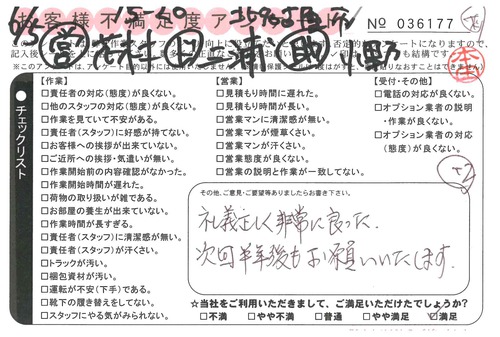 お客様不満足度ア
№ 036177
チェックリスト
【作業】
□責任者の対応(態度)が良くない。
□他のスタッフの対応(態度)が良くない。
□作業を見ていて不安がある。
□責任者(スタッフ)に好感が持てない。
□お客様への挨拶が出来ていない。
□ご近所への挨拶・気遣いが無い。
□作業開始前の内容確認がなかった。
□作業開始時間が遅れた。
□荷物の取り扱いが雑である。
□お部屋の養生が出来ていない。
□作業時間が長すぎる。
□責任者(スタッフ)に清潔感が無い。
□責任者(スタッフ)が汗くさい。
□トラックが汚い。
□梱包資材が汚い。
□運転が不安(下手)である。
□靴下の履き替えをしてない。
□スタッフにやる気がみられない。
【営業】
□見積もり時間に遅れた。
□見積もり時間が長い。
□営業マンに清潔感が無い。
□営業マンが煙草くさい。
□営業マンが汗くさい。
□営業態度が良くない。
□営業の説明と作業が一致してない。
【受付・その他】
□電話の対応が良くない。
□オプション業者の説明
・作業が良くない。
□オプション業者の対応
(態度)が良くない。
その他、ご意見・ご要望等ありましたらお書き下さい。
礼義正しく非常に良った。
次回半年後もお願いいたします。
☆当社をご利用いただきまして、ご満足いただけたでしょうか?
□不満 □やや不満 □普通 □やや満足 ☑満足